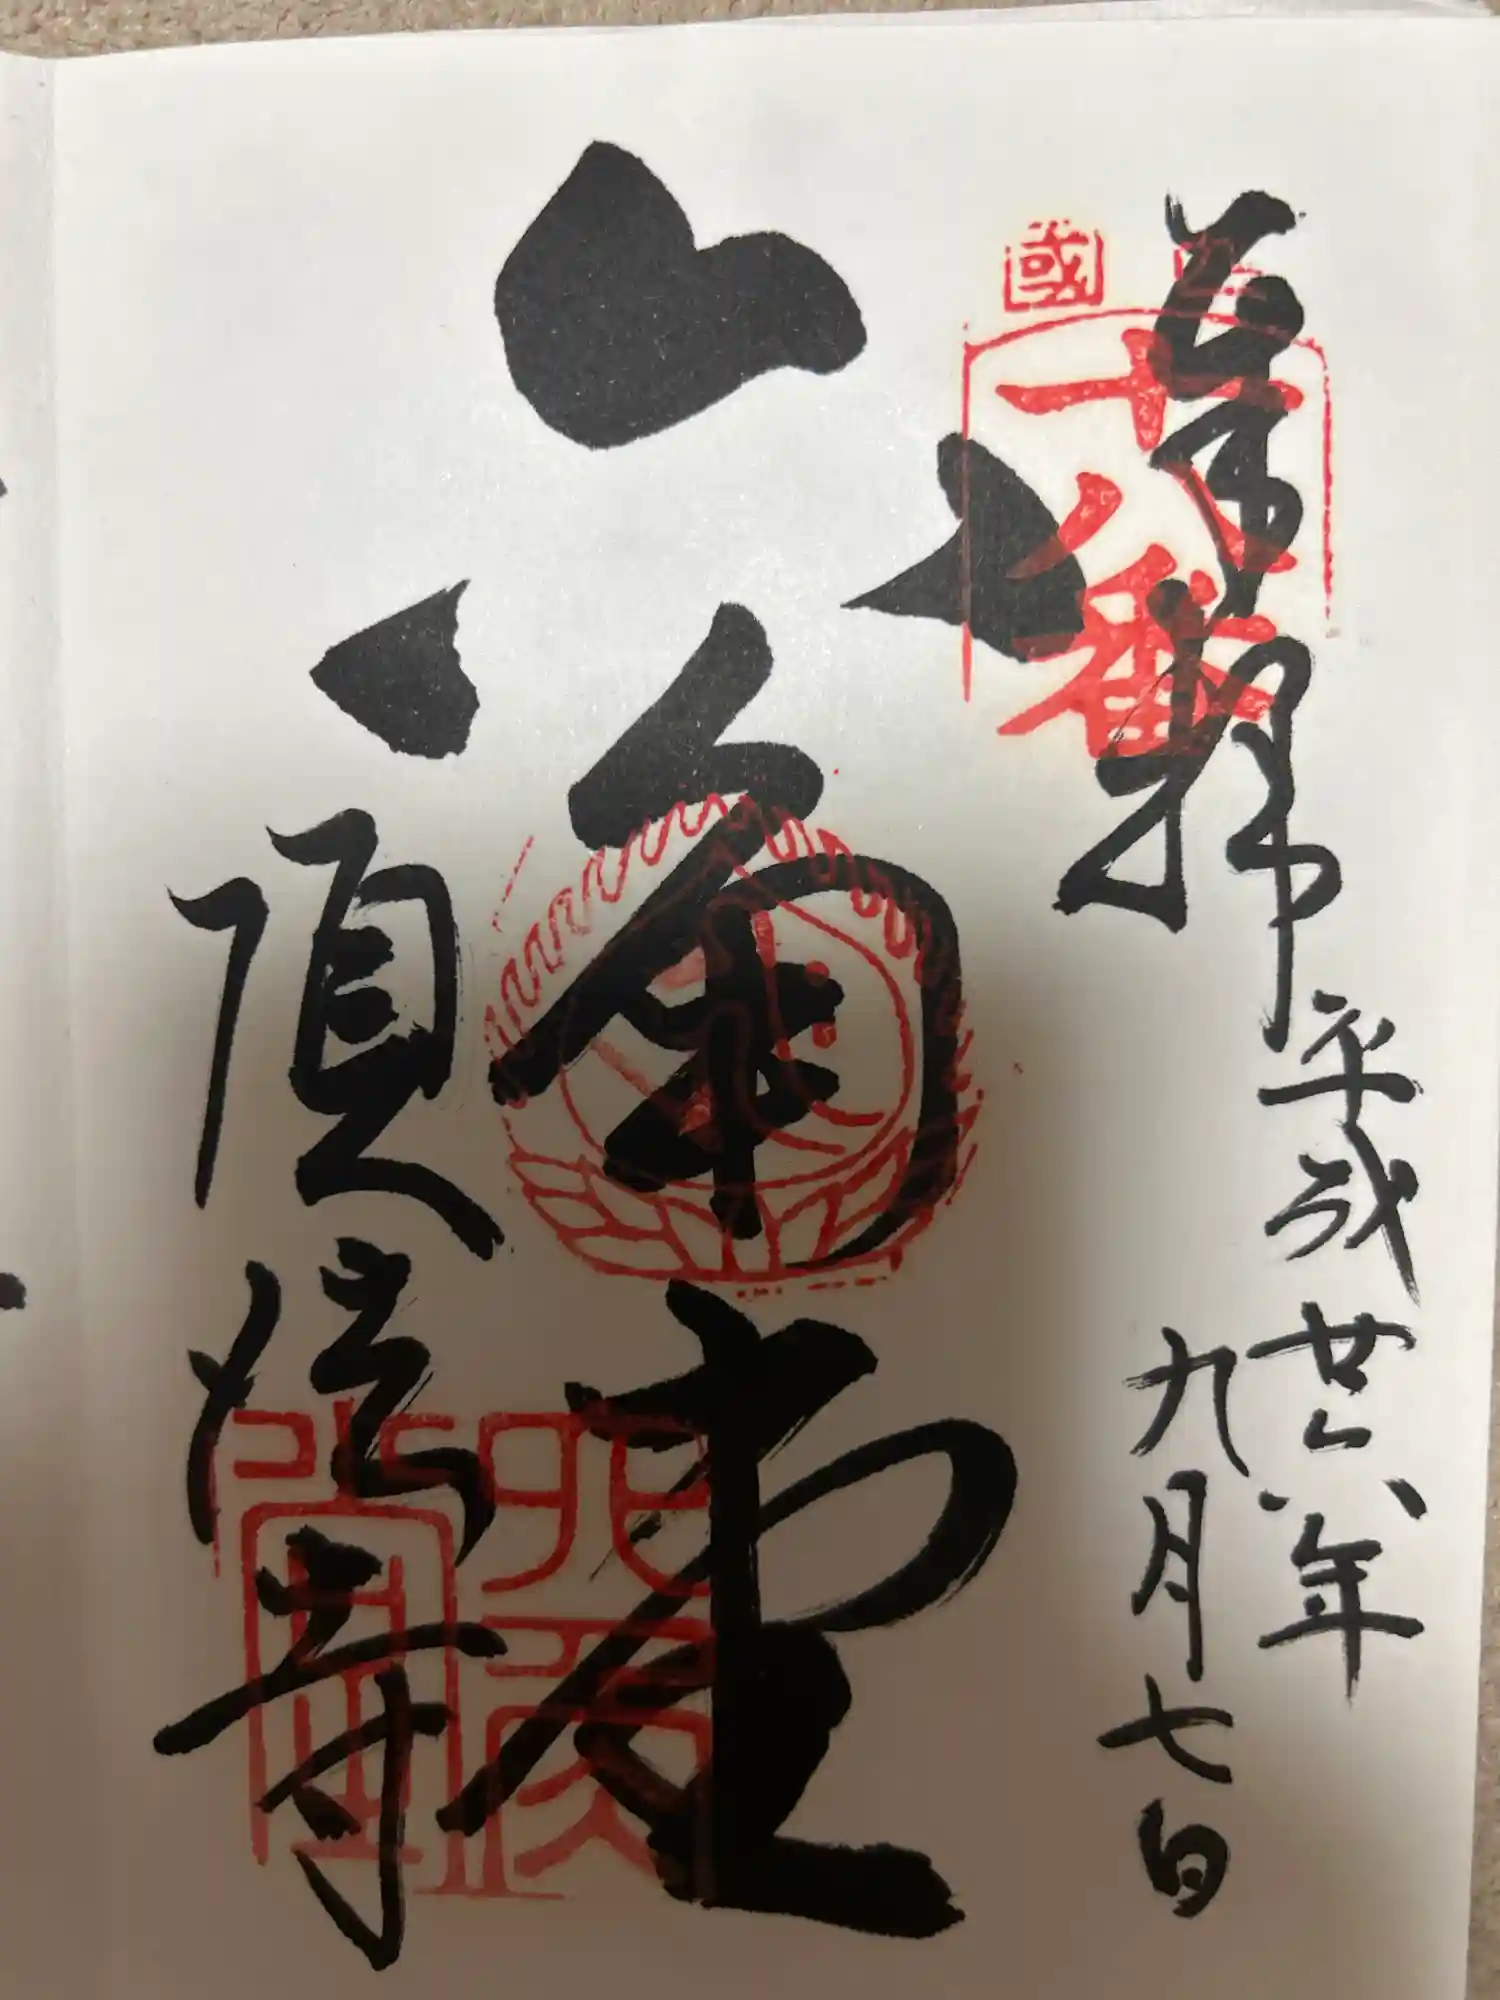 奉拝
平成廿六年
九月七日
國
十八番
六角堂
頂法寺